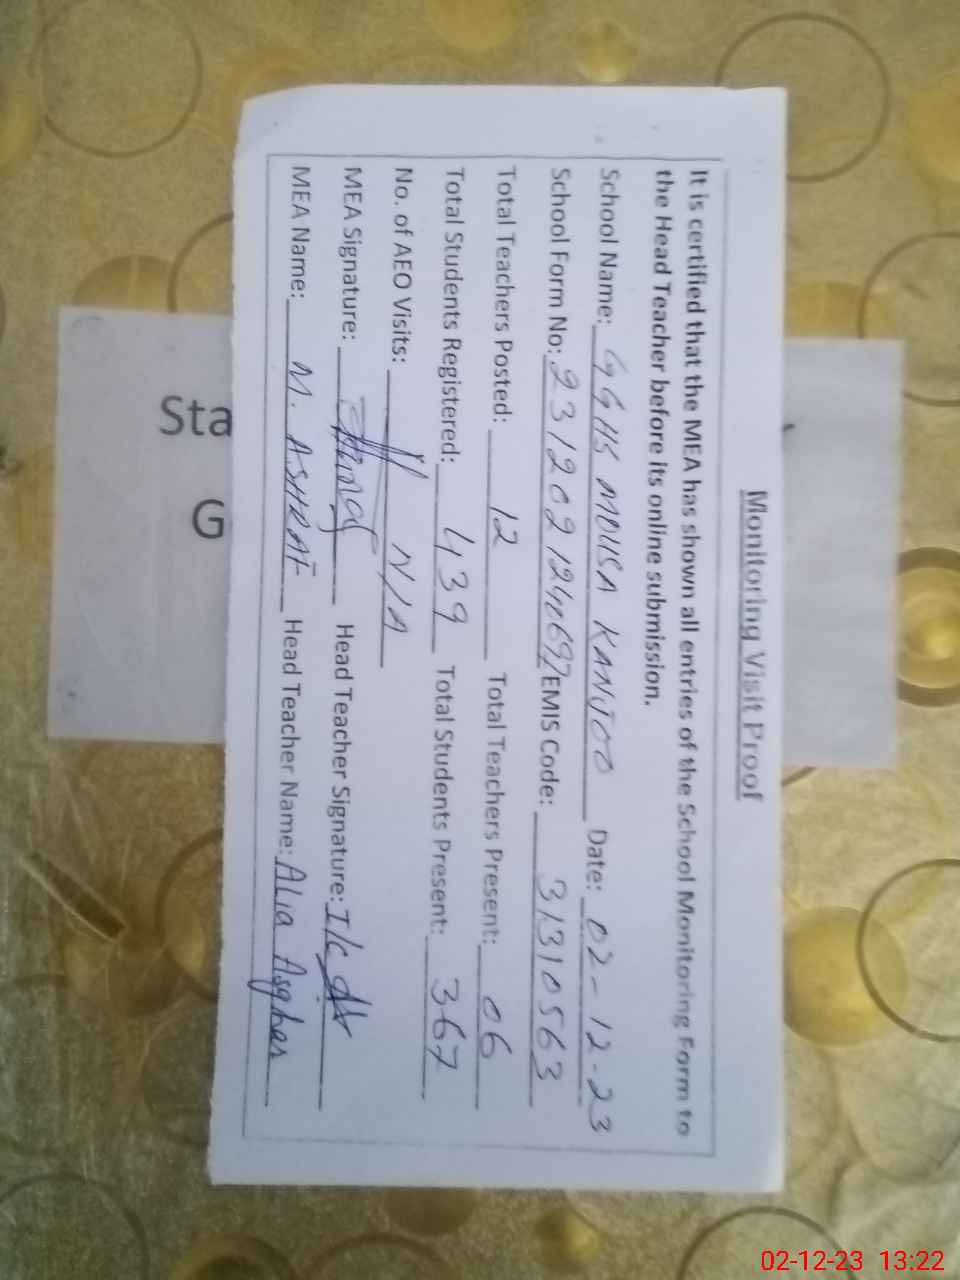 Monitoring Visit Proof
It is certified that the MEA has shown all entries of the School Monitoring Form to
the Head Teacher before its online submission.
School Name: GGHS MOUSA KANJOO Date: 02-12-23
School Form No: 2312021240697 EMIS Code: 31310563
Total Teachers Posted: 12 Total Teachers Present: 06
Total Students Registered: 439 Total Students Present: 367
No. of AEO Visits: N/A
MEA Signature: Head Teacher Signature: I/c
MEA Name: M. ASHRAF Head Teacher Name: Alia Asghar
Sta
G
02-12-23 13:22